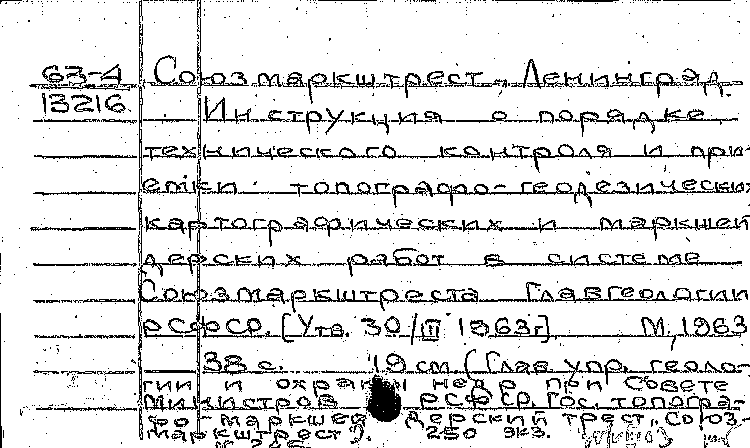 63-4 Союзмаркштрест, Ленинград.
13216. Инструкция о порядке
технического контроля и при-
емки топографо-геодезических
картографических и маркшей
дерских работ в системе
Союзмаркштреста Главгеологии
РСФСР. [Утв. 30/III 1963г]. М, 1963
38 с. 19 см (Глав упр. геоло-
гии и охраны недр при Совете
Министров РСФСР. Гос. топогра-
фо-маркшейдерский трест „Союз-
маркштрест"). 250 экз.